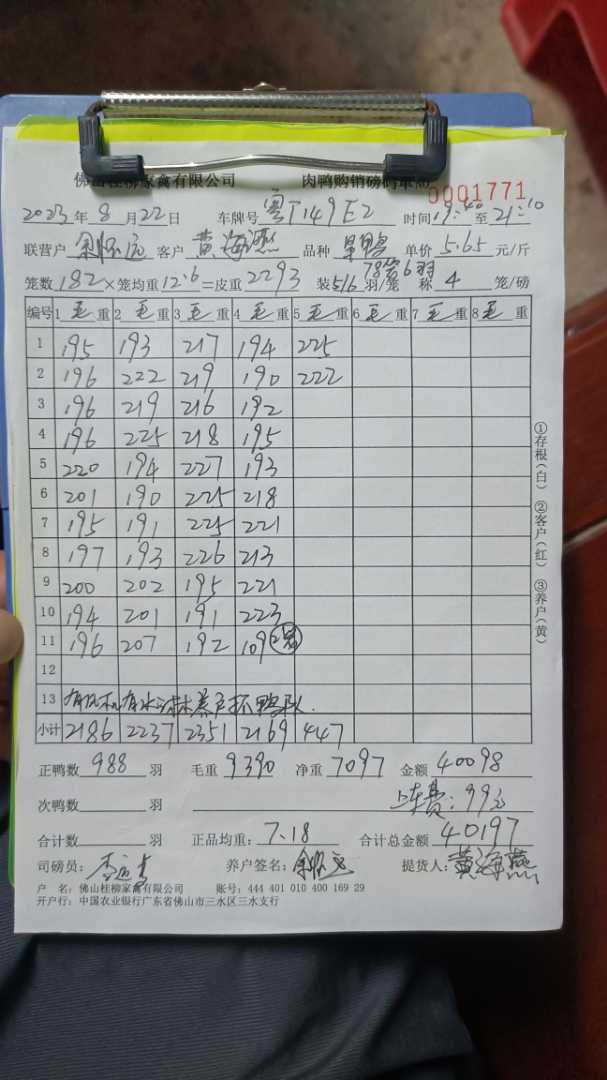 佛山桂柳家禽有限公司 肉鸭购销磅码单
0001771
2023年8月22日 车牌号 粤T149E2 时间19:40至21:10
联营户 余怀远 客户 黄海燕 品种 单价5.65元/斤
78笼6羽
笼数182×笼均重12.6=皮重2293 装5/6羽/笼 称4笼/磅
编号 1毛重 2毛重 3毛重 4毛重 5毛重 6毛重 7毛重 8毛重
1 195 193 217 194 225
2 196 222 219 190 222
3 196 219 216 192
4 196 225 218 195
5 220 194 227 193
6 201 190 225 218
7 195 191 225 221
8 197 193 226 213
9 200 202 195 221
10 194 201 191 223
11 196 207 192 109
12
13 有风机有水淋养户
小计 2186 2237 2351 2169 447
正鸭数988羽 毛重9390 净重7097 金额40098
次鸭数 羽 上车费:99元
合计数 羽 正品均重:7.18 合计总金额40197
司磅员: 养户签名:余怀远 提货人:黄海燕
户 名:佛山桂柳家禽有限公司 账号:444 401 010 400 169 29
开户行:中国农业银行广东省佛山市三水区三水支行
①存根(白) ②客户(红) ③养户(黄)